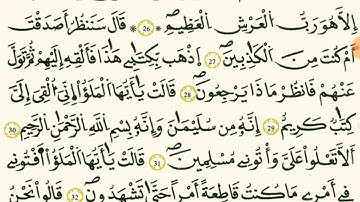 إِلَّا هُوَ رَبُّ الْعَرْشِ الْعَظِيْمِ ۞ 26 قَالَ سَنَنْظُرُ أَصَدَقْتَ
أَمْ كُنْتَ مِنَ الْكَاذِبِيْنَ 27 إِذْهَبْ بِكِتَابِيْ هٰذَا فَأَلْقِهْ إِلَيْهِمْ ثُمَّ تَوَلَّ
عَنْهُمْ فَانْظُرْ مَاذَا يَرْجِعُوْنَ 28 قَالَتْ يَا أَيُّهَا الْمَلَؤُا إِنِّيْ أُلْقِيَ إِلَيَّ
كِتٰبٌ كَرِيْمٌ 29 إِنَّهُ مِنْ سُلَيْمَانَ وَإِنَّهُ بِسْمِ اللهِ الرَّحْمٰنِ الرَّحِيْمِ 30
أَلَّا تَعْلُوْا عَلَيَّ وَأْتُوْنِيْ مُسْلِمِيْنَ 31 قَالَتْ يَا أَيُّهَا الْمَلَؤُا أَفْتُوْنِيْ
فِيْ أَمْرِيْ مَا كُنْتُ قَاطِعَةً أَمْرًا حَتّٰى تَشْهَدُوْنِ 32 قَالُوْا نَحْنُ